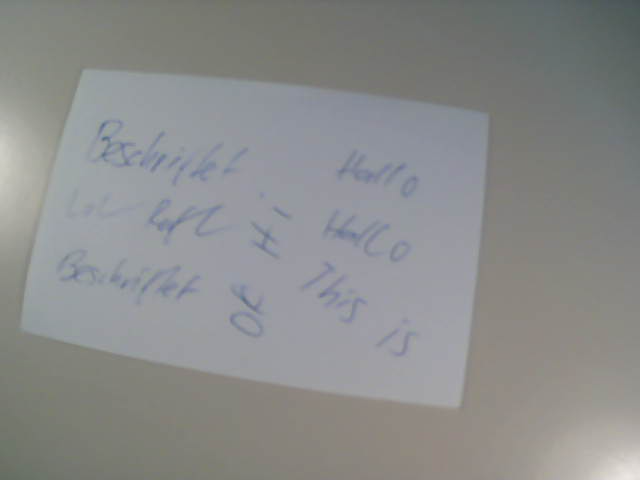 Beschriftet Hallo
Lol Rofl Hi Hallo
Beschriftet This is